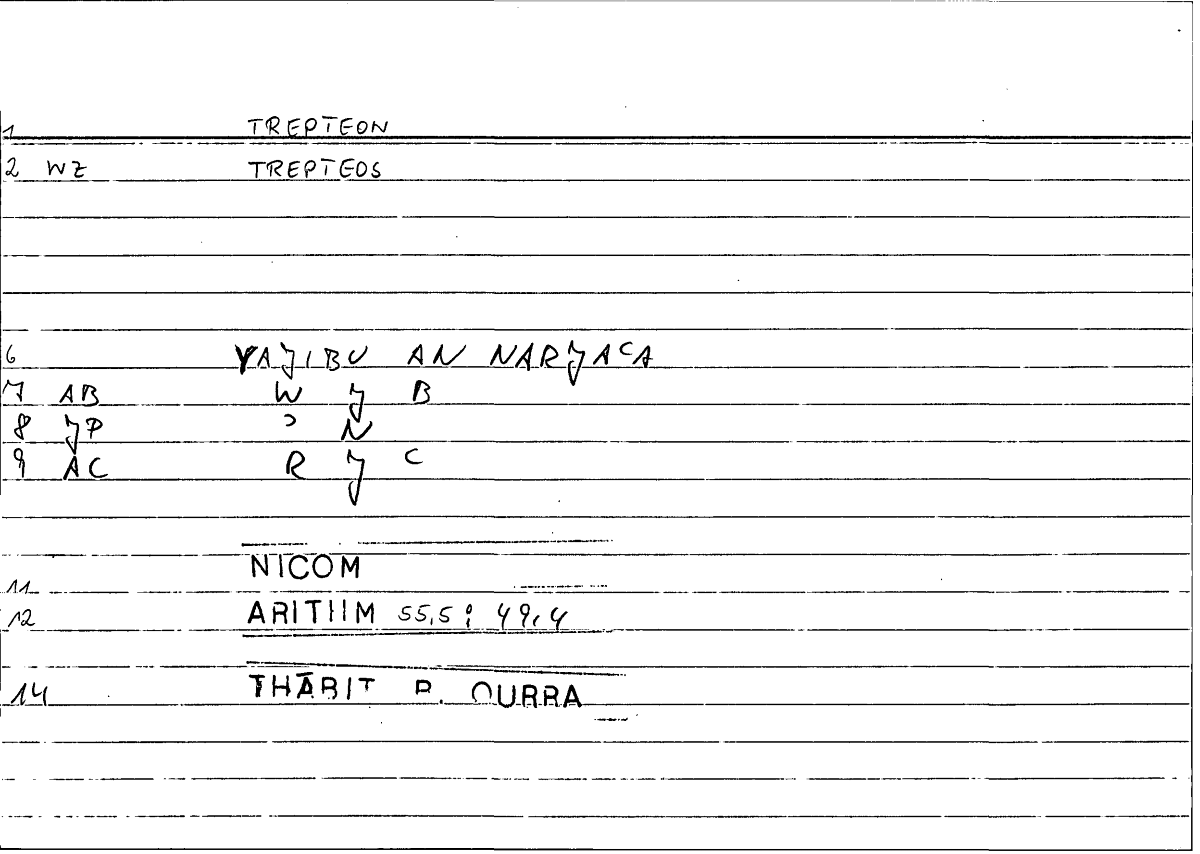 1 TREPTEON
2 WZ TREPTEOS
6 YAJIBU AN NARJACA
7 AB W J B
8 JP ɔ N
9 AC R J C
NICOM
11
12 ARITHM 55,5; 49,4
14 THĀBIT B. QURRA